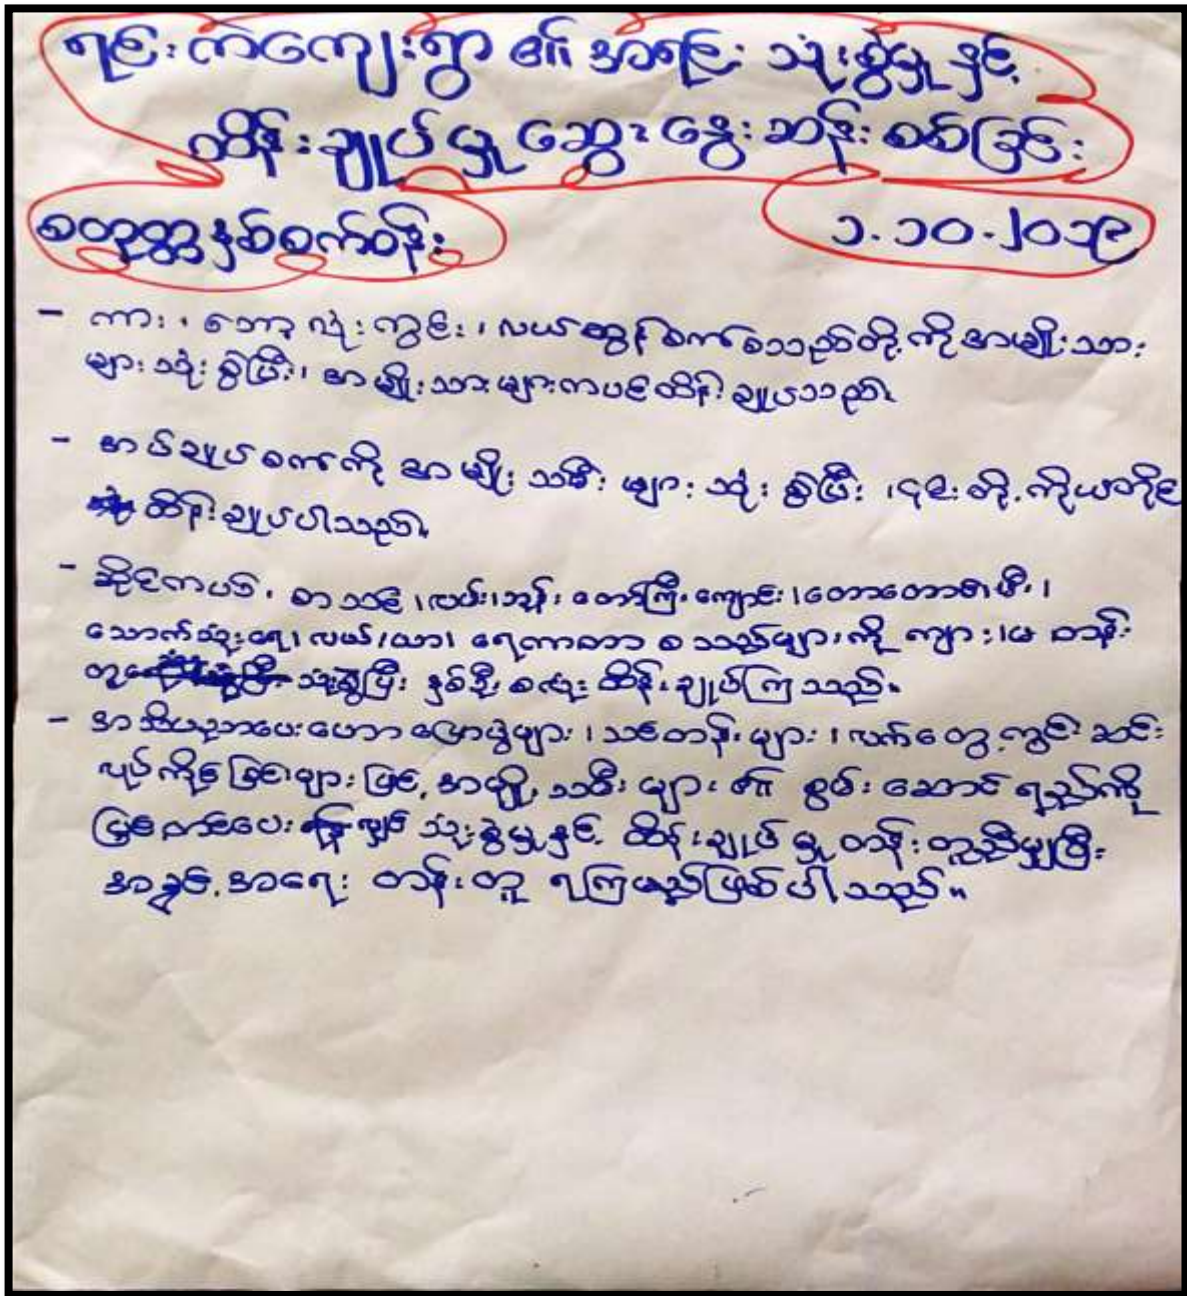 ရင်းကဲကျေးရွာ ၏ အရင်း သုံးစွဲမှု နှင့်
ထိန်းချုပ်မှု ဆွေးနွေးဆန်းစစ်ခြင်း
စတုတ္ထနှစ်စက်ဝန်း
၁.၁၀.၂၀၁၉
- ကား၊ ဘောလုံးကွင်း၊ လယ်ထွန်စက်စသည်တို့ကို အမျိုးသား
များ သုံးစွဲပြီး၊ အမျိုးသားများကပင်ထိန်းချုပ်သည်။
- အပ်ချုပ်စက်ကို အမျိုးသမီး များ သုံး စွဲပြီး ၊၎င်းတို့ကိုယ်တိုင်
ထိန်းချုပ်ပါသည်။
- ဆိုင်ကယ်၊ စာသင်၊လမ်း၊ဘုန်းတော်ကြီးကျောင်း၊တောတောင်၊မီး၊
သောက်သုံးရေ၊လယ်၊ယာ၊ ရေကာတာ စသည်များကို ကျား၊မ တန်း
တူ သုံးစွဲပြီး နှစ်ဦးစလုံး ထိန်းချုပ်ကြသည်။
- အသိပညာပေးဟောပြောပွဲများ ၊သင်တန်းများ ၊လက်တွေ့ကွင်းဆင်း
လုပ်ကိုင်ခြင်းများဖြင့် အမျိုးသမီးများ၏ စွမ်းဆောင်ရည်ကို
မြှင့်တင်ပေး သုံးစွဲမှုနှင့် ထိန်းချုပ်မှု တန်းတူညီမျှပြီး
အခွင့်အရေး တန်းတူ ရကြမည်ဖြစ်ပါသည်။